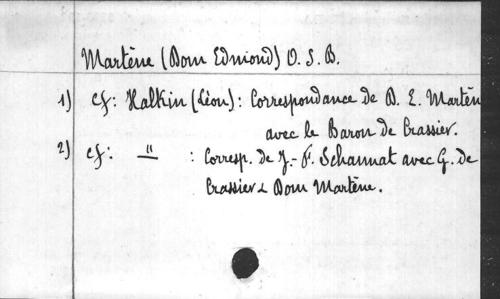 Martène (Dom Edmond) O. S. B.
1) cf: Halkin (Léon): Correspondance de D. E. Martèn
avec le Baron de Crassier.
2) cf: " : Corresp. de J.-F. Schannat avec G. de
Crassier & Dom Martène.